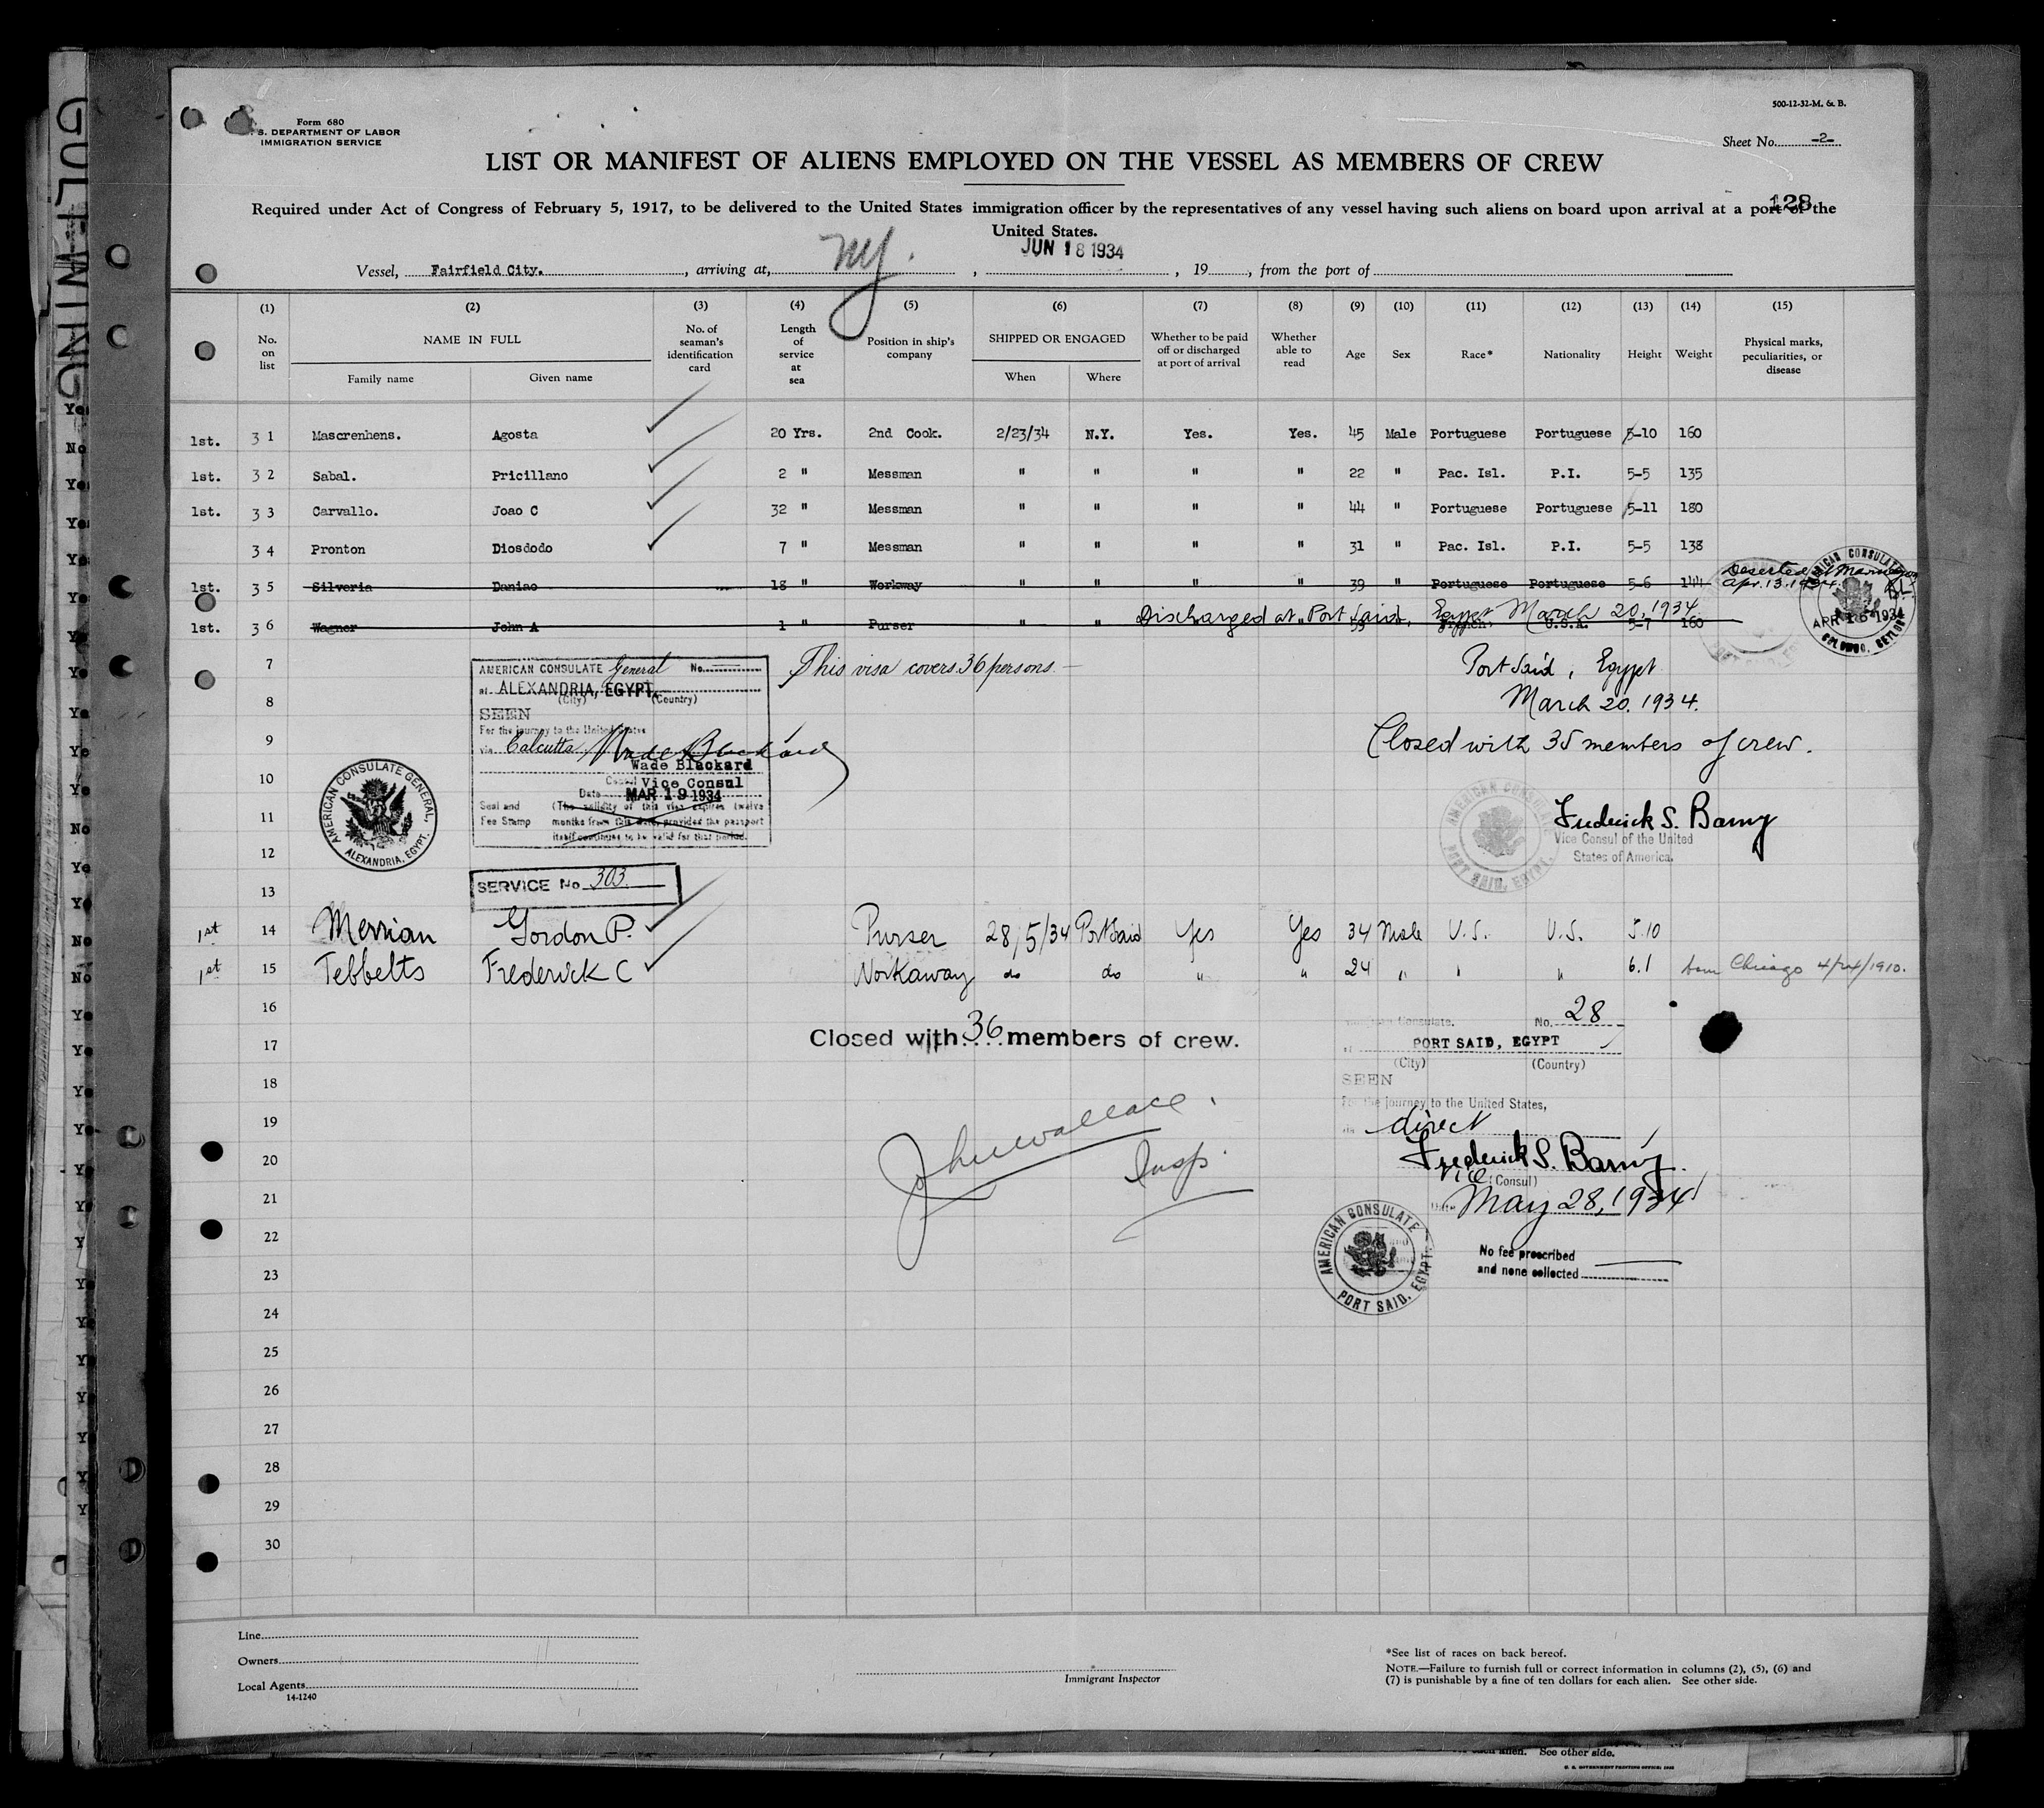 500-12-32-M. & B.
Form 680
S. DEPARTMENT OF LABOR
IMMIGRATION SERVICE
Sheet No. -2-
LIST OR MANIFEST OF ALIENS EMPLOYED ON THE VESSEL AS MEMBERS OF CREW
128
Required under Act of Congress of February 5, 1917, to be delivered to the United States immigration officer by the representatives of any vessel having such aliens on board upon arrival at a port of the
United States.
Vessel, Fairfield City. , arriving at, NY. , JUN 18 1934 , 19 , from the port of
(1) (2) (3) (4) (5) (6) (7) (8) (9) (10) (11) (12) (13) (14) (15)
No. on list NAME IN FULL Family name Given name No. of seaman's identification card Length of service at sea Position in ship's company SHIPPED OR ENGAGED When Where Whether to be paid off or discharged at port of arrival Whether able to read Age Sex Race* Nationality Height Weight Physical marks, peculiarities, or disease
1st. 3 1 Mascrenhens. Agosta 20 Yrs. 2nd Cook. 2/23/34 N.Y. Yes. Yes. 45 Male Portuguese Portuguese 5-10 160
1st. 3 2 Sabal. Pricillano 2 " Messman " " " " 22 " Pac. Isl. P.I. 5-5 135
1st. 3 3 Carvallo. Joao C 32 " Messman " " " " 44 " Portuguese Portuguese 5-11 180
3 4 Pronton Diosdodo 7 " Messman " " " " 31 " Pac. Isl. P.I. 5-5 138
1st. 3 5 Silveria Daniao 18 " Workway " " " " 39 " Portuguese Portuguese 5-6 144 Deserted at Apr. 13. 1934.
Discharged at Port Said, Egypt March 20, 1934
1st. 3 6 Wagner John A 1 " Purser " " " 59 French. U.S.A. 5-7 160
AMERICAN CONSULATE APR 16 1934 COLOMBO, CEYLON
7 This visa covers 36 persons. Port Said, Egypt
8 March 20. 1934.
9 Closed with 35 members of crew.
10
11 Frederick S. Barny
12 Vice Consul of the United
States of America.
AMERICAN CONSULATE PORT SAID, EGYPT
13
AMERICAN CONSULATE General No.
at ALEXANDRIA, EGYPT.
(City) (Country)
SEEN
For the journey to the United States
via Calcutta Wade Blackard
Wade Blackard
Consul Vice Consul
Date MAR 19 1934
Seal and Fee Stamp (The validity of this visa expires twelve
months from this date, provided the passport
itself continues to be valid for that period.
AMERICAN CONSULATE GENERAL, ALEXANDRIA, EGYPT.
SERVICE No 303.
1st 14 Merrian Gordon P. Purser 28/5/34 Port Said Yes Yes 34 Male U.S. U.S. 5.10
1st 15 Tebbelts Frederick C Workaway do do " " 24 " " " 6.1 born Chicago 4/24/1910.
16
17 Closed with 36 members of crew.
18
19
20
21
22
23
24
25
26
27
28
29
30
John Wallace.
Insp.
Consulate. No. 28
PORT SAID, EGYPT
(City) (Country)
SEEN
For the journey to the United States,
via direct
Frederick S. Barny
Vice (Consul)
Date May 28, 1934
AMERICAN CONSULATE PORT SAID, EGYPT.
No fee prescribed
and none collected
Line
Owners
Local Agents
14-1240
Immigrant Inspector
*See list of races on back hereof.
NOTE.—Failure to furnish full or correct information in columns (2), (5), (6) and
(7) is punishable by a fine of ten dollars for each alien. See other side.
See other side.
U. S. GOVERNMENT PRINTING OFFICE:
GULFWING